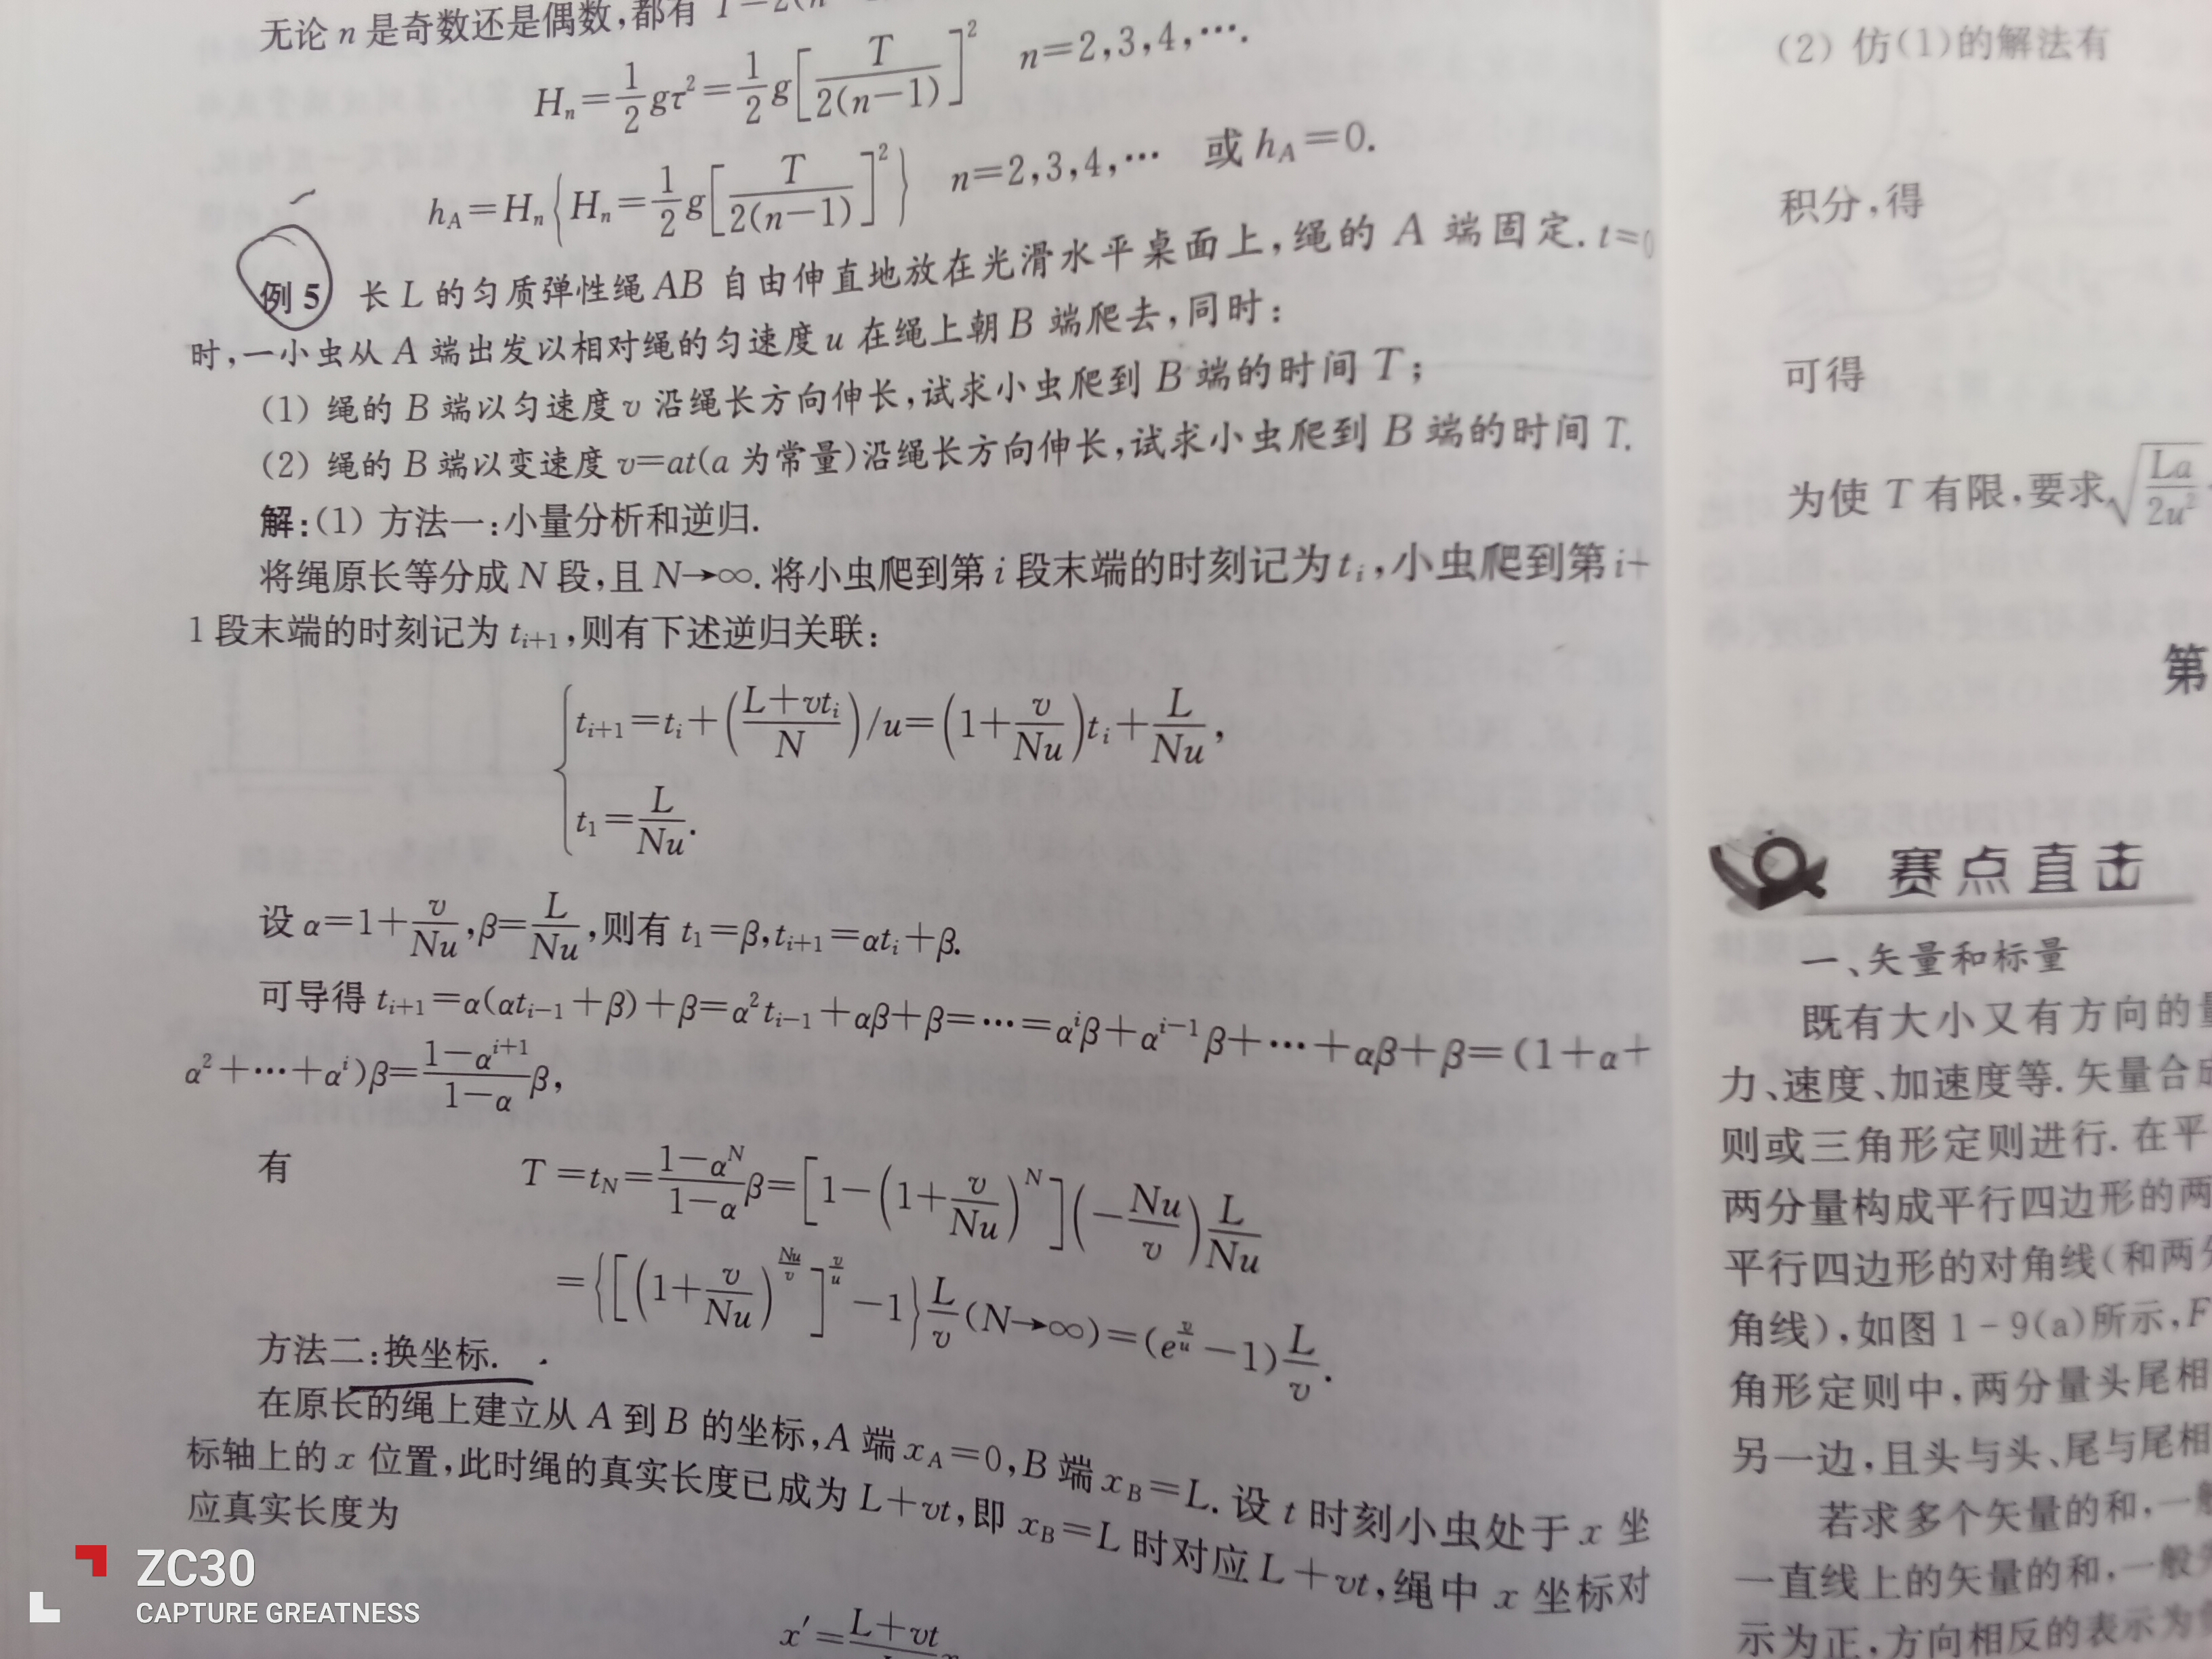 无论 n 是奇数还是偶数,都有
H_n=\frac{1}{2}gτ^2=\frac{1}{2}g[\frac{T}{2(n-1)}]^2 n=2,3,4,⋯.
h_A=H_n{H_n=\frac{1}{2}g[\frac{T}{2(n-1)}]^2} n=2,3,4,⋯ 或 h_A=0.
例 5 长 L 的匀质弹性绳 AB 自由伸直地放在光滑水平桌面上,绳的 A 端固定. t=0
时,一小虫从 A 端出发以相对绳的匀速度 u 在绳上朝 B 端爬去,同时:
(1) 绳的 B 端以匀速度 v 沿绳长方向伸长,试求小虫爬到 B 端的时间 T;
(2) 绳的 B 端以变速度 v=at(a 为常量)沿绳长方向伸长,试求小虫爬到 B 端的时间 T.
解:(1) 方法一:小量分析和逆归.
将绳原长等分成 N 段,且 N→∞. 将小虫爬到第 i 段末端的时刻记为 t_i,小虫爬到第 i+
1 段末端的时刻记为 t_{i+1},则有下述逆归关联:
t_{i+1}=t_i+(\frac{L+vt_i}{N})/u=(1+\frac{v}{Nu})t_i+\frac{L}{Nu},
t_1=\frac{L}{Nu}.
设 α=1+\frac{v}{Nu},β=\frac{L}{Nu},则有 t_1=β,t_{i+1}=αt_i+β.
可导得 t_{i+1}=α(αt_{i-1}+β)+β=α^2t_{i-1}+αβ+β=⋯=α^iβ+α^{i-1}β+⋯+αβ+β=(1+α+
α^2+⋯+α^i)β=\frac{1-α^{i+1}}{1-α}β,
有 T=t_N=\frac{1-α^N}{1-α}β=[1-(1+\frac{v}{Nu})^N](-\frac{Nu}{v})\frac{L}{Nu}
={[(1+\frac{v}{Nu})^{\frac{Nu}{v}}]^{\frac{v}{u}}-1}\frac{L}{v}(N→∞)=(e^{\frac{v}{u}}-1)\frac{L}{v}.
方法二:换坐标.
在原长的绳上建立从 A 到 B 的坐标,A 端 x_A=0,B 端 x_B=L. 设 t 时刻小虫处于 x 坐
标轴上的 x 位置,此时绳的真实长度已成为 L+vt,即 x_B=L 时对应 L+vt,绳中 x 坐标对
应真实长度为
x'=\frac{L+vt}
(2) 仿(1)的解法有
积分,得
可得
为使 T 有限,要求\sqrt{\frac{La}{2u^2}}
第
赛点直击
一、矢量和标量
既有大小又有方向的量
力、速度、加速度等. 矢量合成
则或三角形定则进行. 在平
两分量构成平行四边形的两
平行四边形的对角线(和两分
角线),如图 1-9(a)所示,F
角形定则中,两分量头尾相
另一边,且头与头、尾与尾相
若求多个矢量的和,一般
一直线上的矢量的和,一般先
示为正,方向相反的表示为负
ZC30
CAPTURE GREATNESS